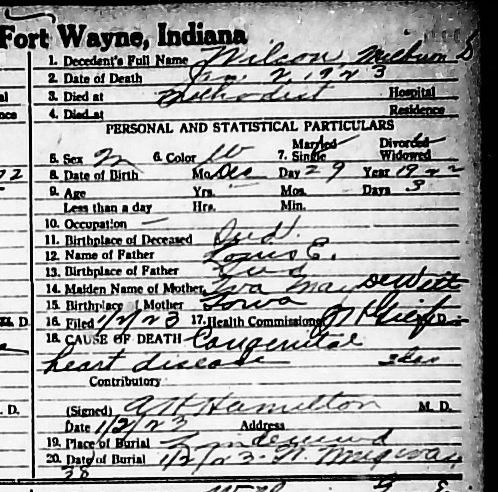 Fort Wayne, Indiana
1. Decedent's Full Name Wilson, S
2. Date of Death Jan 2, 1923
3. Died at Methodist Hospital
4. Died at Residence
PERSONAL AND STATISTICAL PARTICULARS
Married Divorced
5. Sex M 6. Color W 7. Single Widowed
72 8. Date of Birth Mo. Dec Day 29 Year 1922
9. Age Yrs. Mos. Days 3
Less than a day Hrs. Min.
10. Occupation —
11. Birthplace of Deceased Ind.
12. Name of Father Louis E.
13. Birthplace of Father Ind
14. Maiden Name of Mother Iva May DeWitt
15. Birthplace of Mother Iowa
D. 16. Filed 1/2/23 17. Health Commissioner
18. CAUSE OF DEATH Congenital
heart disease
Contributory
D. (Signed) A H Hamilton M. D.
Date 1/2/23 Address
19. Place of Burial Lindenwood
20. Date of Burial 1/2/23
38